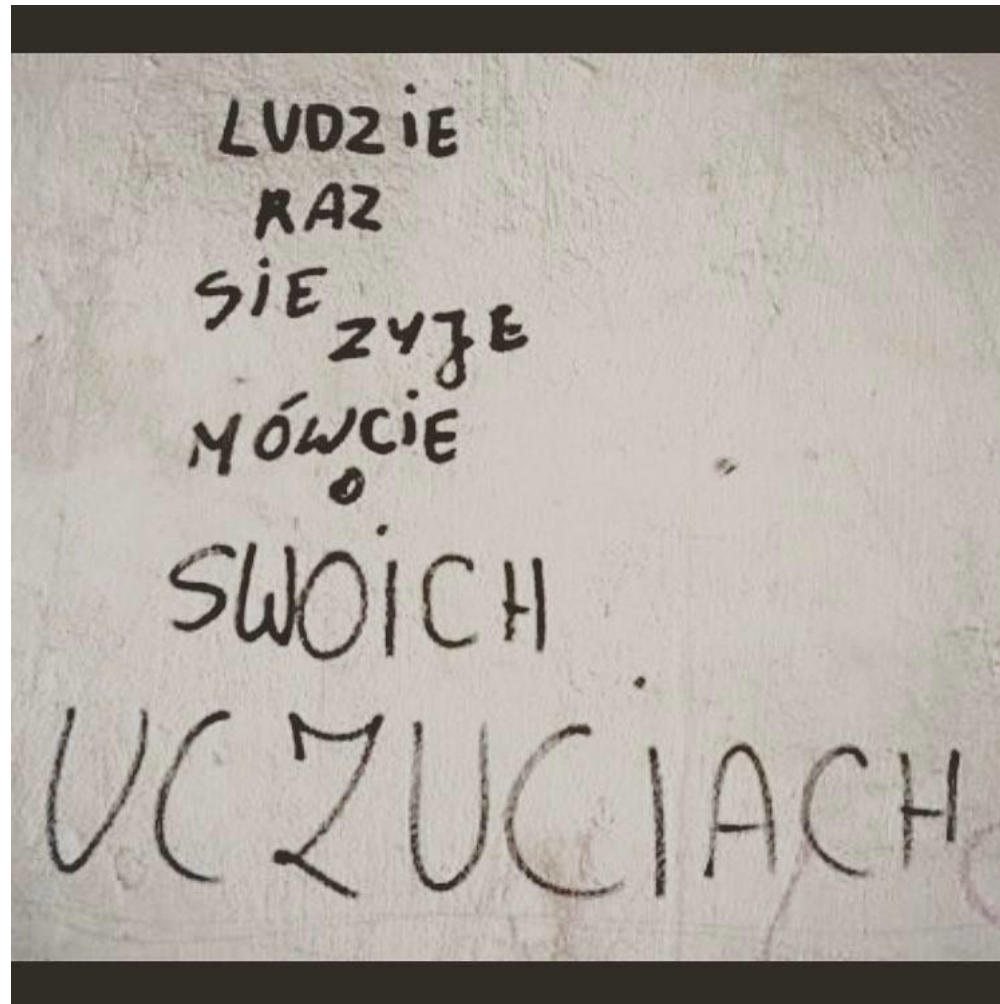 LUDZiE
RAZ
SiE
ZYJE
MÓWCiE
O
SWOiCH
UCZUCiACH